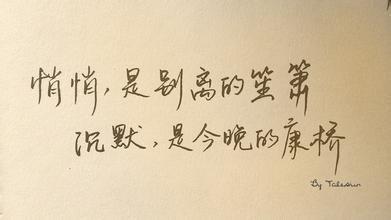 悄悄，是别离的笙箫
沉默，是今晚的康桥
By Taleshin